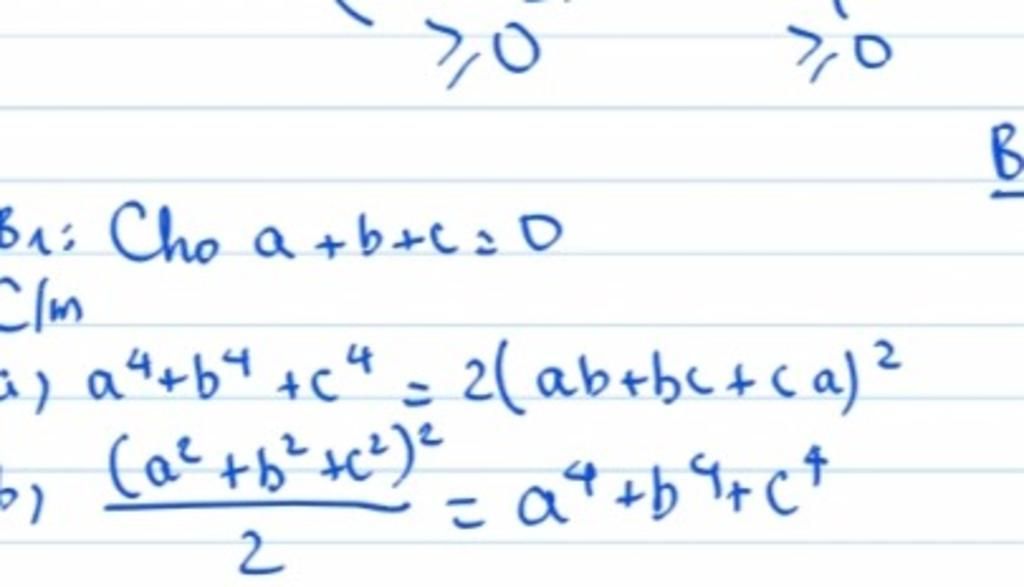 ⩾0 ⩾0
B
B1: Cho a+b+c=0
C/m
a) a⁴+b⁴+c⁴ = 2(ab+bc+ca)²
b) (a²+b²+c²)²/2 = a⁴+b⁴+c⁴